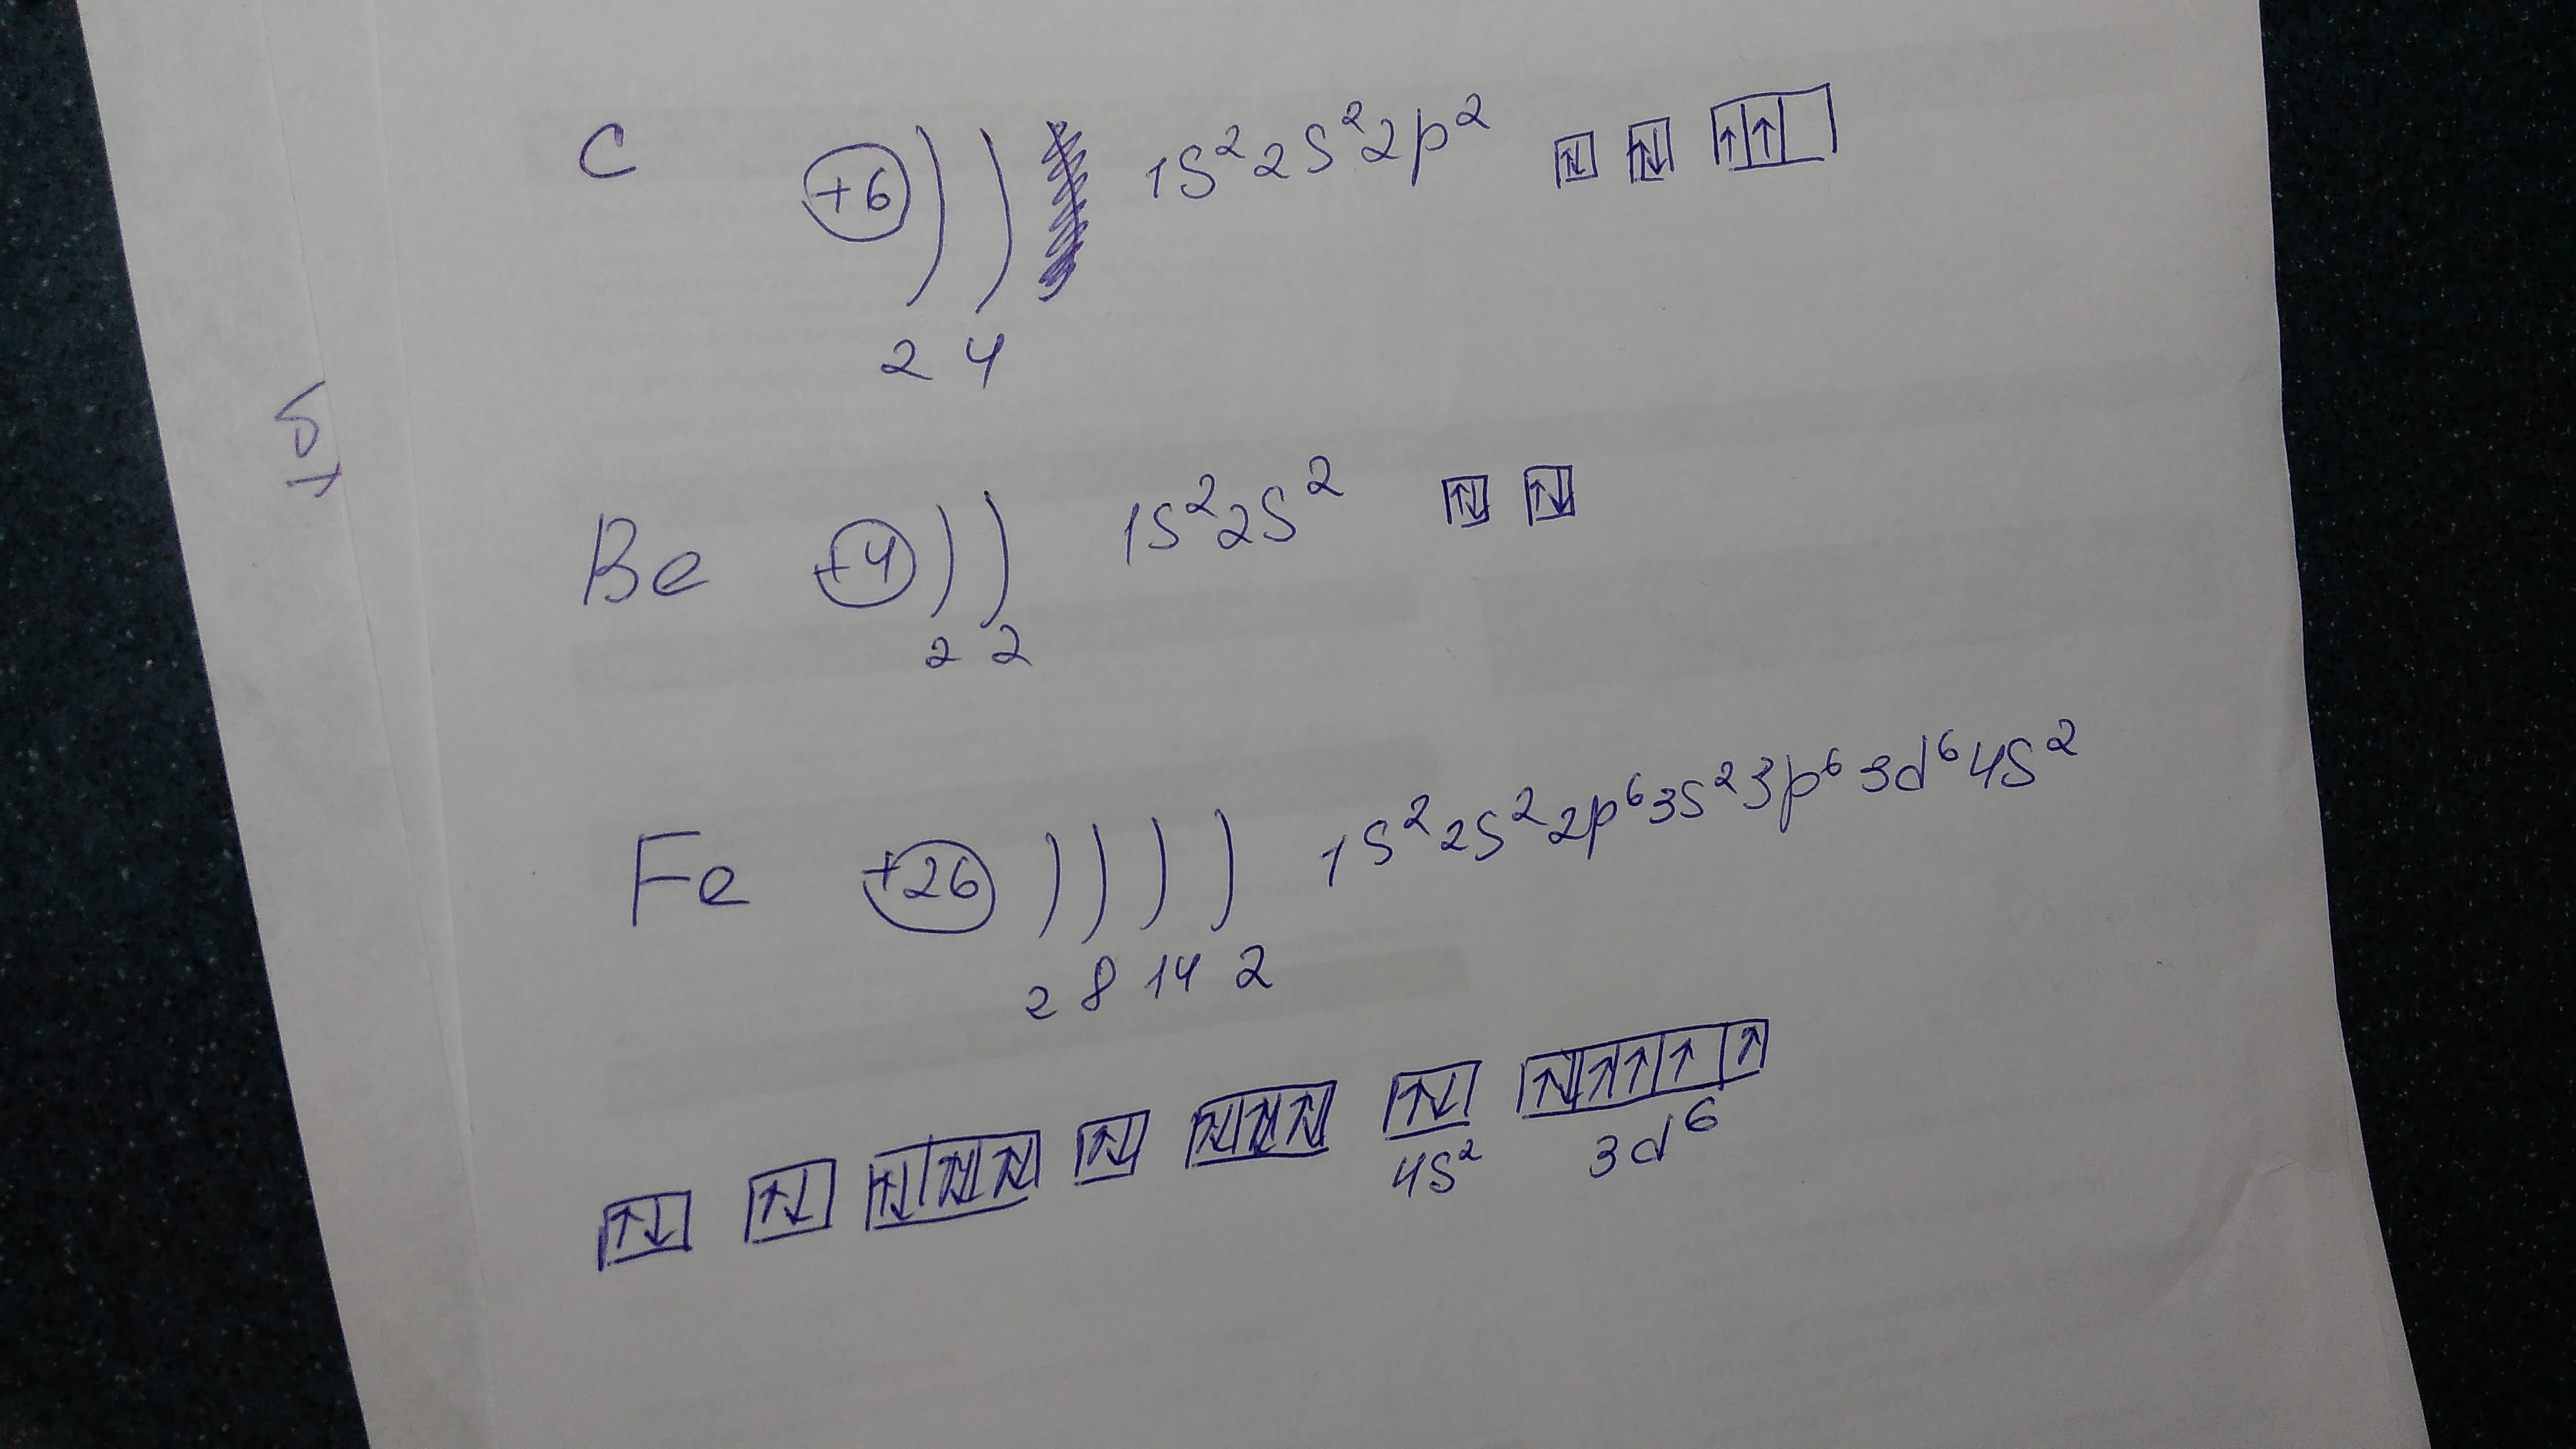 C +6 ) ) 1S²2S²2p² ↑↓ ↑↓ ↑ ↑
2 4
Be +4 ) ) 1S²2S² ↑↓ ↑↓
2 2
Fe +26 ) ) ) ) 1S²2S²2p⁶3S²3p⁶3d⁶4S²
2 8 14 2
↑↓ ↑↓ ↑↓ ↑↓ ↑↓ ↑↓ ↑↓ ↑↓ ↑↓ ↑↓ ↑↓ ↑ ↑ ↑ ↑
4S² 3d⁶